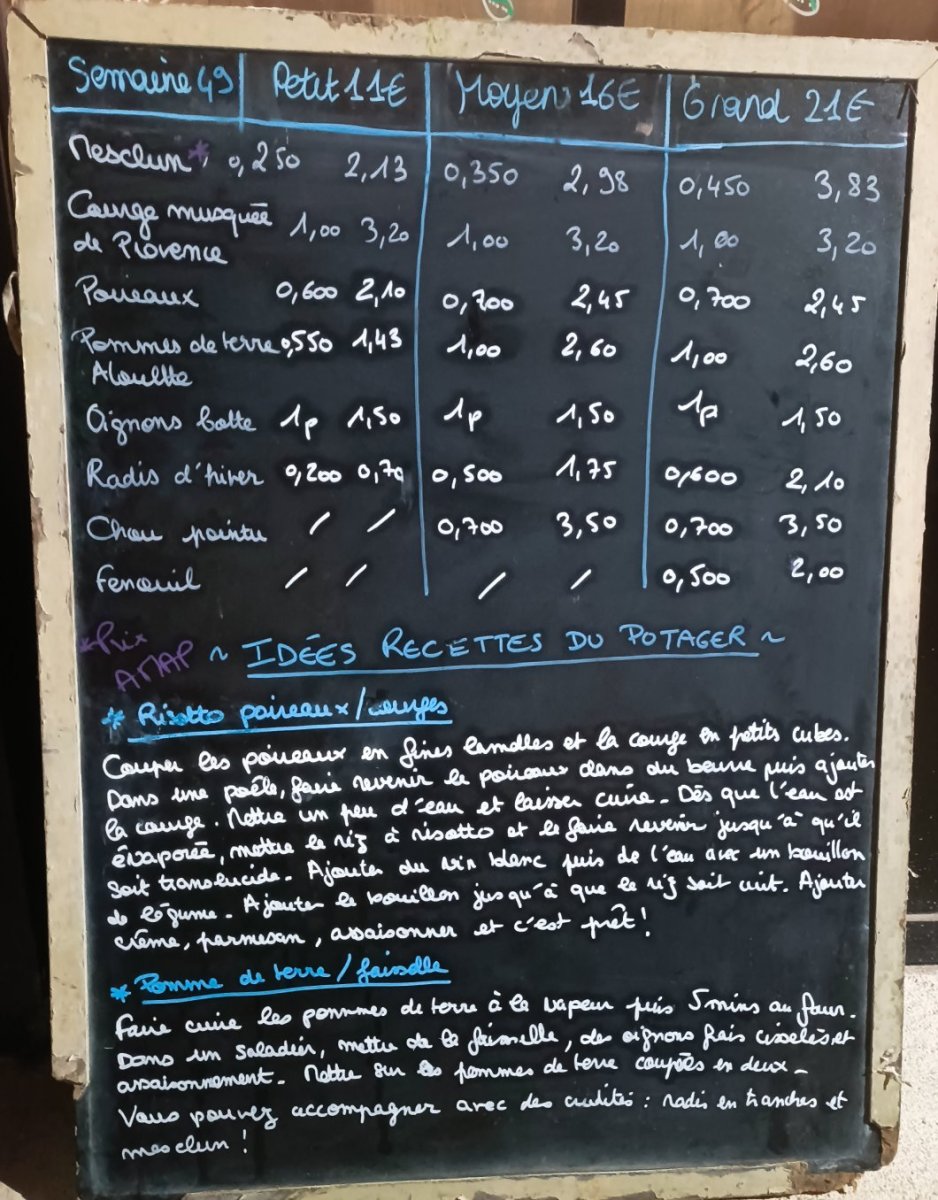 Semaine 49 Petit 11€ Moyen 16€ Grand 21€
Mesclun* 0,250 2,13 0,350 2,98 0,450 3,83
Courge musquée de Provence 1,00 3,20 1,00 3,20 1,00 3,20
Poireaux 0,600 2,10 0,700 2,45 0,700 2,45
Pommes de terre Alouette 0,550 1,43 1,00 2,60 1,00 2,60
Oignons botte 1p 1,50 1p 1,50 1p 1,50
Radis d'hiver 0,200 0,70 0,500 1,75 0,600 2,10
Chou pointu / / 0,700 3,50 0,700 3,50
Fenouil / / / / 0,500 2,00
*Prix
AMAP
~ IDÉES RECETTES DU POTAGER ~
* Risotto poireaux/courges
Couper les poireaux en fines lamelles et la courge en petits cubes.
Dans une poêle, faire revenir le poireaux dans du beurre puis ajouter
la courge. Mettre un peu d'eau et laisser cuire. Dès que l'eau est
évaporée, mettre le riz à risotto et le faire revenir jusqu'à qu'il
soit translucide. Ajouter du vin blanc puis de l'eau avec un bouillon
de légume. Ajouter le bouillon jusqu'à que le riz soit cuit. Ajouter
crème, parmesan, assaisonner et c'est prêt!
* Pomme de terre/faisselle
Faire cuire les pommes de terre à la vapeur puis 5mins au four.
Dans un saladier, mettre de la faisselle, des oignons frais ciselés et
assaisonnement. Mettre sur les pommes de terre coupées en deux.
Vous pouvez accompagner avec des crudités : radis en tranches et
mesclun !